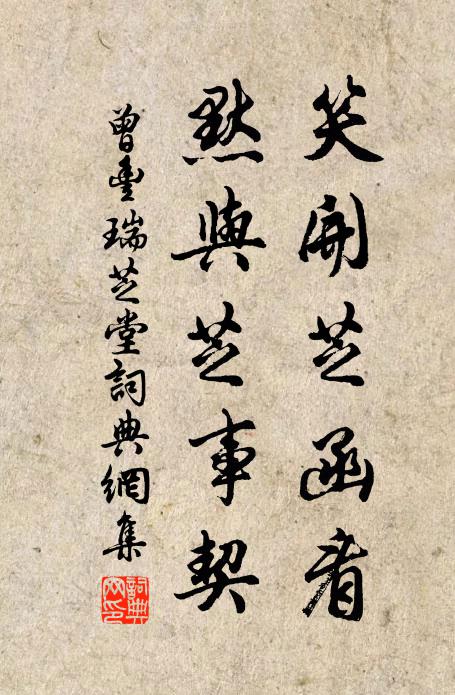 笑開芝函看
默與芝事契
曾豐瑞芝堂詞典網集
詞典网印